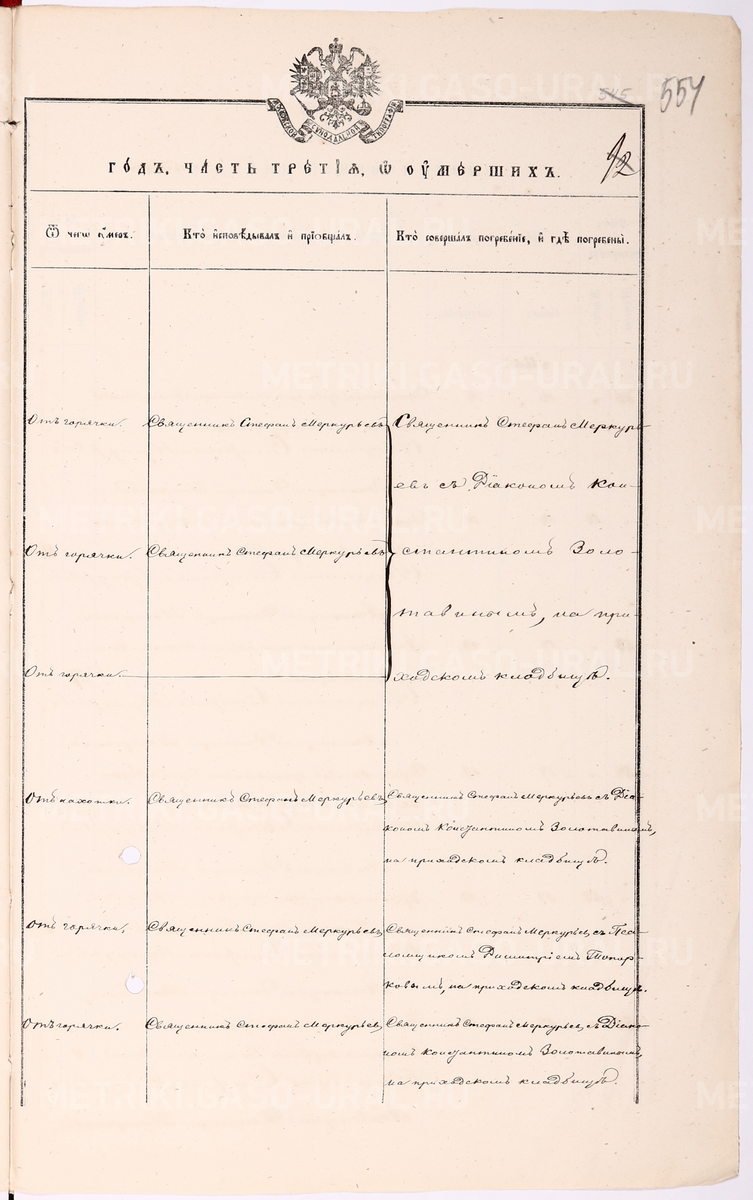 545
554
МОСКОВСКОЙ СѴНОДАЛЬНОЙ ТИПОГРАФІИ
ГОДЪ, ЧАСТЬ ТРЕТІѦ, Ѿ ОУМЕРШИХЪ.
92
Ѿ чегѡ умеръ.
Кто исповѣдывалъ и пріѡбщалъ.
Кто совершалъ погребеніе, и гдѣ погребены.
Отъ горячки.
Священникъ Стефанъ Меркурьевъ
Священникъ Стефанъ Меркурь-
евъ съ Діакономъ Кон-
Отъ горячки.
Священникъ Стефанъ Меркурьевъ
стантиномъ Золо-
тавинымъ, на при-
Отъ горячки.
ходскомъ кладбищѣ.
Отъ чахотки.
Священникъ Стефанъ Меркурьевъ
Священникъ Стефанъ Меркурьевъ съ Діа-
кономъ Константиномъ Золотавинымъ,
на приходскомъ кладбищѣ.
Отъ горячки.
Священникъ Стефанъ Меркурьевъ
Священникъ Стефанъ Меркурьев, съ Пса-
ломщикомъ Димитріемъ Топор-
ковымъ, на приходскомъ кладбищѣ.
Отъ горячки.
Священникъ Стефанъ Меркурьев,
Священникъ Стефанъ Меркурьев, съ Діако-
номъ Константиномъ Золотавинымъ,
на приходскомъ кладбищѣ.
METRIKI.GASO-URAL.RU